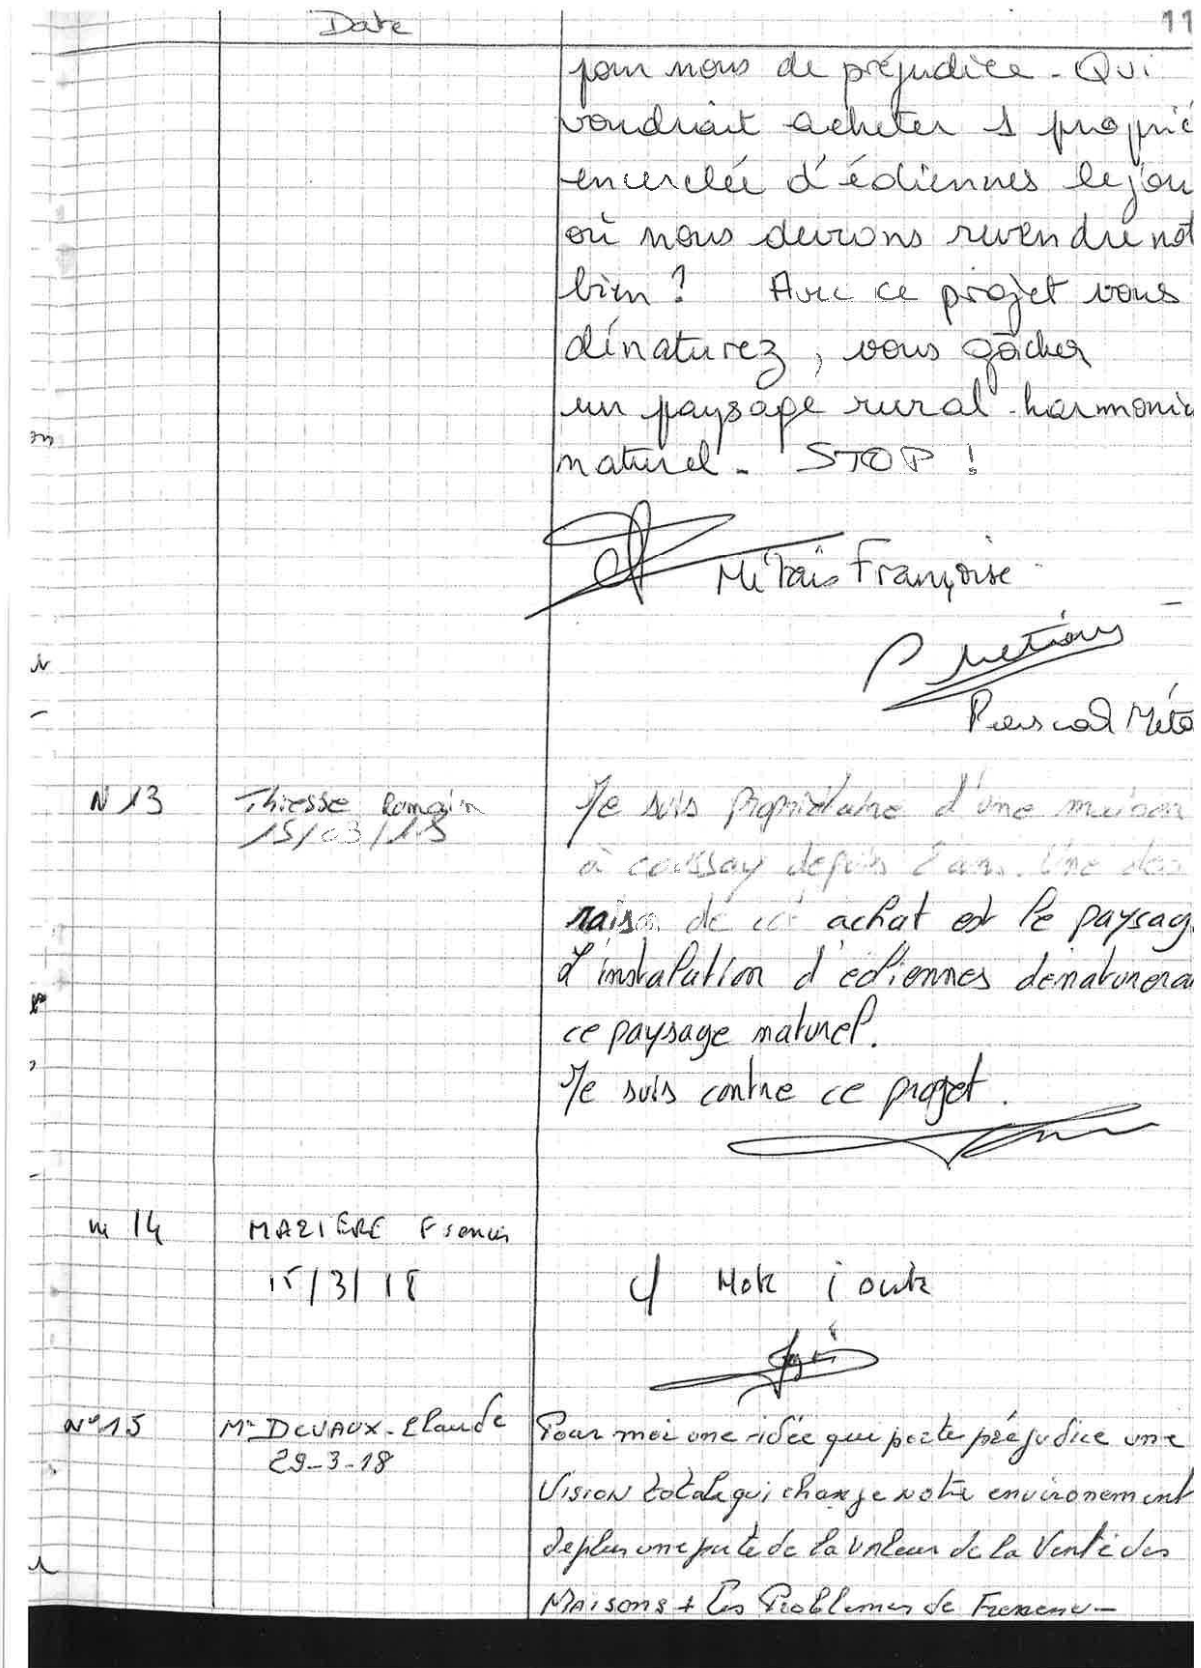 Date
11
pour nous de préjudice - Qui
voudrait acheter 1 proprié
encerclée d'éoliennes le jou
où nous devrons revendre not
bien ? Avec ce projet vous
dénaturez, vous gâcher
un paysage rural harmonie
naturel - STOP !
Françoise
Pascal Méta
N 13
Thiesse Romain
15/03/18
Je suis propriétaire d'une maison
à coussay depuis 2 ans. Une des
raison de cet achat est le paysag
L'instalation d'éoliennes denaturera
ce paysage naturel.
Je suis contre ce projet.
n 14
MAZIERE Francis
15/3/18
N° 15
Mr DEVAUX - Claude
29-3-18
Pour moi une idée qui porte préjudice une
Vision totale qui change notre environement
de plus une perte de la valeur de la Vente des
Maisons + les Problemes de